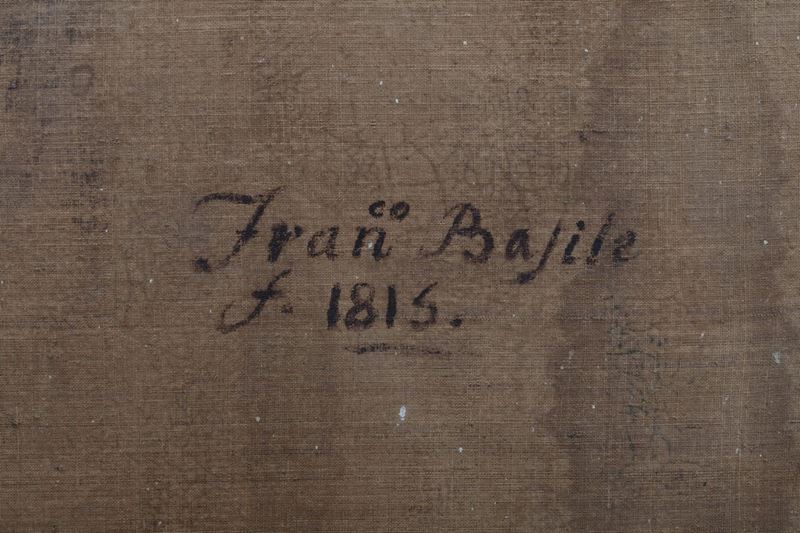 Fran̄ᶜᵒ Baſile
f. 1815.